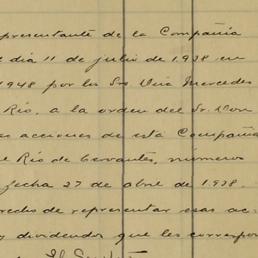 epresentante de la Compañía
l día 11 de julio de 1938 en
1948 por los Srs Vda Mercedes
Río, a la orden del Sr. Don
as acciones de esta Compañía
el Río de Cervantes, números
fecha 27 de abril de 1938.
recho de representar esas ac-
y dividendos que les correspon